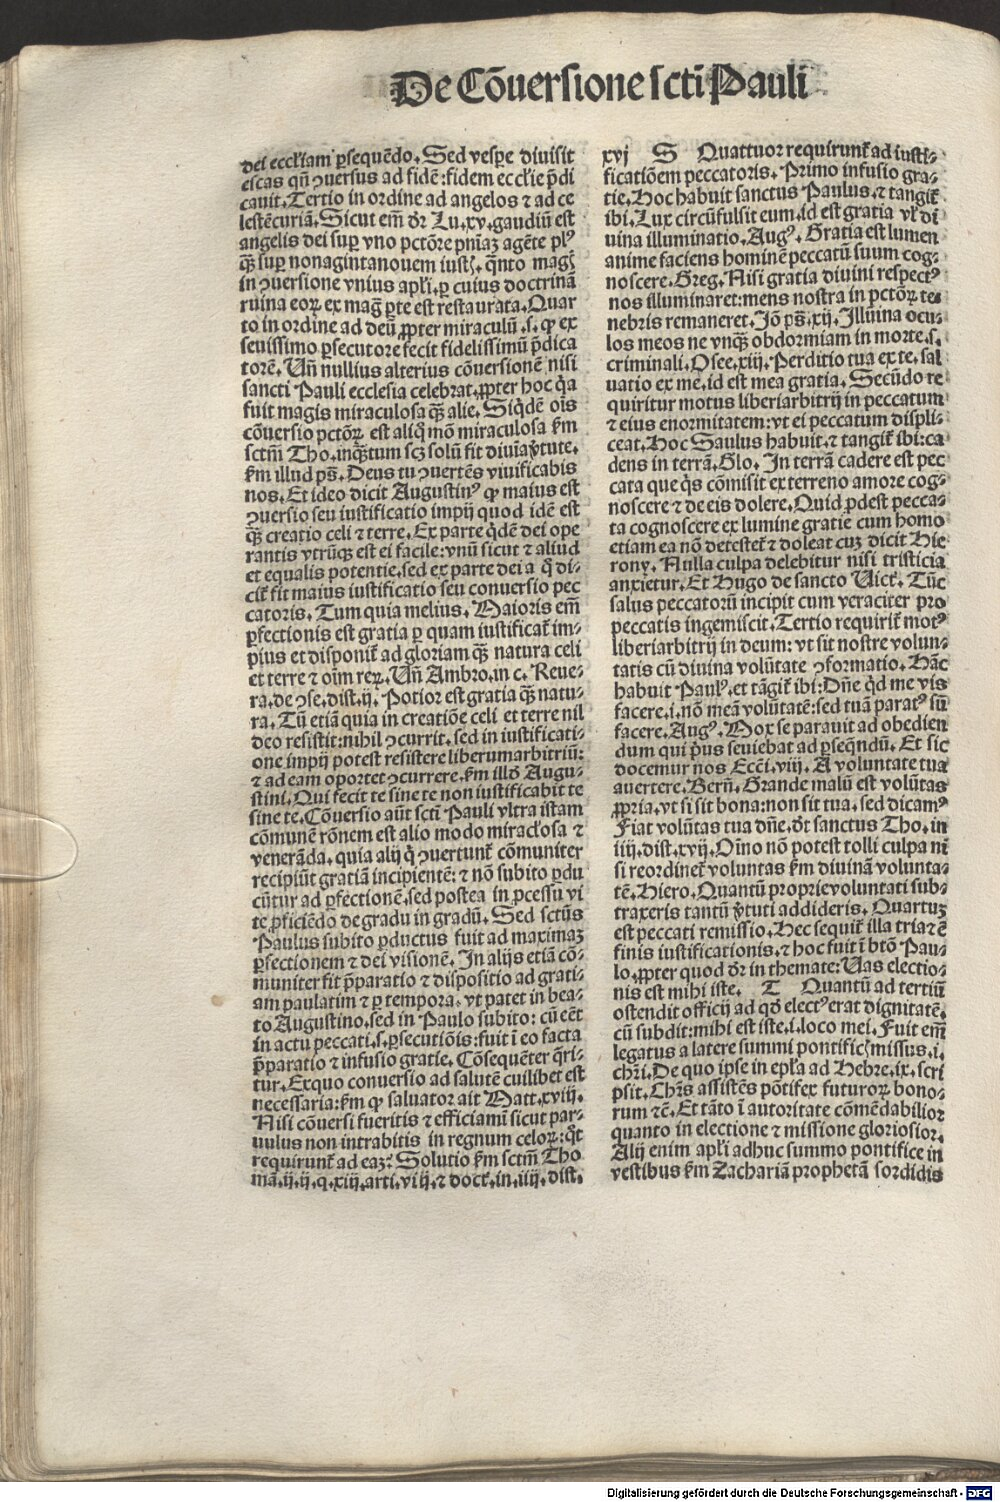 De Cōuersione scti Pauli
dei eccliam ꝑsequēdo. Sed vesꝑe diuisit
escas qn̄ ꝯuersus ad fidē: fidem ecclie p̄di
cauit. Tertio in ordine ad angelos ⁊ ad ce
lestēcuriā. Sicut em̄ dr̄ Lu. xv. gaudiū est
angelis dei suꝑ vno pctōre pn̄iaꝫ agēte plꝰ
qꝫ̄ suꝑ nonagintanouem iustꝭ. q̄nto magꝭ
in ꝯuersione vnius apl̄i. ꝑ cuius doctrinā
ruina eoꝝ ex mag ꝑte est restaurata. Quar
to in ordine ad deū ꝓpter miraculū .s. ꝙ ex
seuissimo ꝑsecutore fecit fidelissimū p̄dica
torē. Un̄ nullius alterius cōuersionē nisi
sancti Pauli ecclesia celebrat. ꝓpter hoc qꝛa
fuit magis miraculosa qꝫ̄ alie. Siqͥdē oīs
cōuersio pctōꝝ est aliqͦ mō miraculosa ẜm
sctm̄ Tho. inqꝫ̄tum scꝫ solū fit diuīa v̓tute.
ẜm illud ps̄. Deus tu ꝯuertēs viuificabis
nos. Et ideo dicit Augustinꝰ ꝙ maius est
ꝯuersio seu iustificatio impij quod idē est
qꝫ̄ creatio celi ⁊ terre. Ex parte qͥdē dei ope
rantis vtrūqꝫ est ei facile: vnū sicut ⁊ aliud
et equalis potentie. sed ex parte dei a qͦ di⸗
cit̄ fit maius iustificatio seu conuersio pec
catoris. Tum quia melius. Maioris em̄
ꝑfectionis est gratia ꝑ quam iustificat̄ im⸗
pius et disponit̄ ad gloriam qꝫ̄ natura celi
et terre ⁊ oīm reꝝ. Un̄ Ambro. in c. Reue⸗
ra. de ꝯse. dist. ij. Potior est gratia qꝫ̄ natu⸗
ra. Tū etiā quia in creatiōe celi et terre nil
deo resistit: nihil ꝯcurrit. sed in iustificati⸗
one impij potest resistere liberumarbitriū:
⁊ ad eam oportet ꝯcurrere. ẜm illď Augu⸗
stini. Qui fecit te sine te non iustificabit te
sine te. Cōuersio aūt scti Pauli vltra istam
cōmunē rōnem est alio modo miraclosa ⁊
venerāda. quia alij qͥ ꝯuertunt̄ cōmuniter
recipiūt gratiā incipientē: ⁊ nō subito ꝑdu
cūtur ad ꝑfectionē. sed postea in ꝓcessu vi
te ꝓficiēdo de gradu in gradū. Sed sctūs
Paulus subito ꝑductus fuit ad maximaꝫ
ꝑfectionem ⁊ dei visionē. In alijs etiā cō⸗
muniter fit p̄paratio ⁊ dispositio ad grati⸗
am paulatim ⁊ ꝑ tempora. vt patet in bea⸗
to Augustino. sed in Paulo subito: cū eēt
in actu peccati .s. ꝑsecutiōis: fuit ī eo facta
p̄paratio ⁊ infusio gratie. Cōsequēter qͥri⸗
tur. Exquo conuersio ad salutē cuilibet est
necessaria: ẜm ꝙ saluator ait Matt. xviij.
Nisi cōuersi fueritis ⁊ efficiamī sicut par⸗
uulus non intrabitis in regnum celoꝝ: qͦt
requirunt̄ ad eaꝫ? Solutio ẜm sctm̄ Tho
mā. ij. ij. q. xiij. arti. viij. ⁊ doct̄. in. iiij. dist.
xvj S Quattuor requirunt̄ ad iusti⸗
ficatiōem peccatoris. Primo infusio gra⸗
tie. Hoc habuit sanctus Paulus. ⁊ tangit̄
ibi. Lux circūfulsit eum. id est gratia vl̄ di
uina illuminatio. Augꝰ. Gratia est lumen
anime faciens hominē peccatū suum cog⸗
noscere. Greg. Nisi gratia diuini respectꝰ
nos illuminaret: mens nostra in pctōꝝ te⸗
nebris remaneret. Jō ps̄. xij. Illūina ocu⸗
los meos ne vnqꝫ̄ obdormiam in morte .s.
criminali. Osee. xiij. Perditio tua ex te. sal
uatio ex me. id est mea gratia. Secūdo re
quiritur motus liberiarbitrij in peccatum
⁊ eius enormitatem: vt ei peccatum displi⸗
ceat. Hoc Saulus habuit. ⁊ tangit̄ ibi: ca
dens in terrā. Glo. In terrā cadere est pec
cata que qͥs cōmisit ex terreno amore cog⸗
noscere ⁊ de eis dolere. Quid ꝓdest pecca⸗
ta cognoscere ex lumine gratie cum homo
etiam ea nō detestet̄ ⁊ doleat cuꝫ dicit Hie
rony. Nulla culpa delebitur nisi tristicia
anxietur. Et Hugo de sancto Uict̄. Tūc
salus peccatorū incipit cum veraciter pro
peccatis ingemiscit. Tertio requirit̄ motꝰ
liberiarbitrij in deum: vt sit nostre volun⸗
tatis cū diuina volūtate ꝯformatio. Hāc
habuit Paulꝰ. et tāgit̄ ibi: Dn̄e qͥd me vis
facere .i. nō meā volūtatē: sed tuā paratꝰ sū
facere. Augꝰ. Mox se parauit ad obedien
dum qui pͥus seuiebat ad ꝑseqn̄dū. Et sic
docemur nos Ecci. viij. A voluntate tua
auertere. Bern̄. Grande malū est volūtas
ꝓpria. vt si sit bona: non sit tua. sed dicamꝰ
Fiat volūtas tua dn̄e. ďt sanctus Tho. in
iiij. dist. xvij. Oīno nō potest tolli culpa ni
si reordinet̄ voluntas ẜm diuinā volunta⸗
tē. Hiero. Quantū proprievoluntati sub⸗
traxeris tantū v̓tuti addideris. Quartuꝫ
est peccati remissio. Hec sequit̄ illa tria ⁊ ē
finis iustificationis. ⁊ hoc fuit ī btō Pau⸗
lo. ꝓpter quod dr̄ in themate: Uas electio⸗
nis est mihi iste. T Quantū ad tertiū
ostendit officij ad qď electꝰ erat dignitatē.
cū subdit: mihi est iste .i. loco mei. Fuit em̄
legatus a latere summi pontificꝭ missus .i.
chr̄i. De quo ipse in epl̄a ad Hebre. ix. scri
psit. Chr̄s assistēs pōtifex futuroꝝ bono⸗
rum ⁊c̄. Et tāto ī autoritate cōmēdabilior
quanto in electione ⁊ missione gloriosior.
Alij enim apl̄i adhuc summo pontifice in
vestibus ẜm Zachariā prophetā sordidis
Digitalisierung gefördert durch die Deutsche Forschungsgemeinschaft - DFG